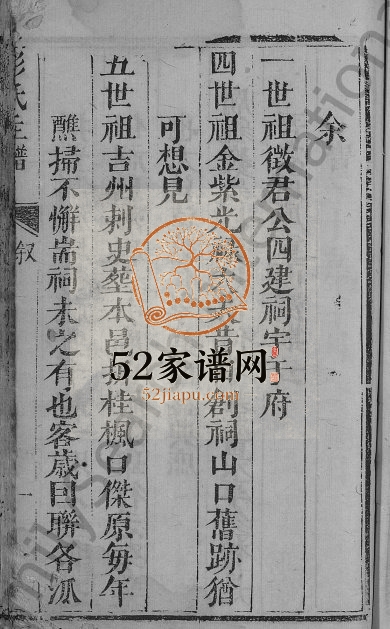 余
一世祖徵君公四建祠宇于府
四世祖金紫光大夫昔創祠山口舊跡猶
可想見
五世祖吉州刺史塟本邑桂楓口傑原每年
醮掃不懈耑祠未之有也客歲曰聯各派
彭氏譜
叙
一
52家谱网
52jiapu.com